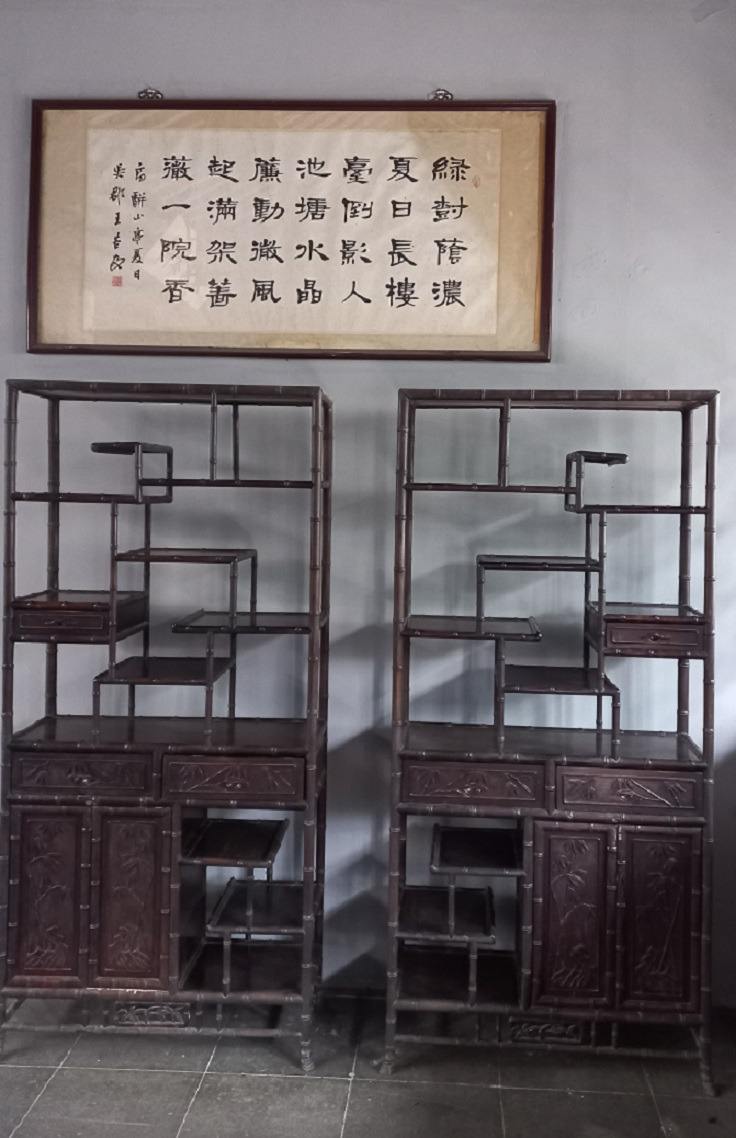 綠尌蔭濃
夏日長樓
臺倒影入
池塘水晶
簾動微風
起滿架薔
薇一院香
高駢山亭夏日
吳郡王